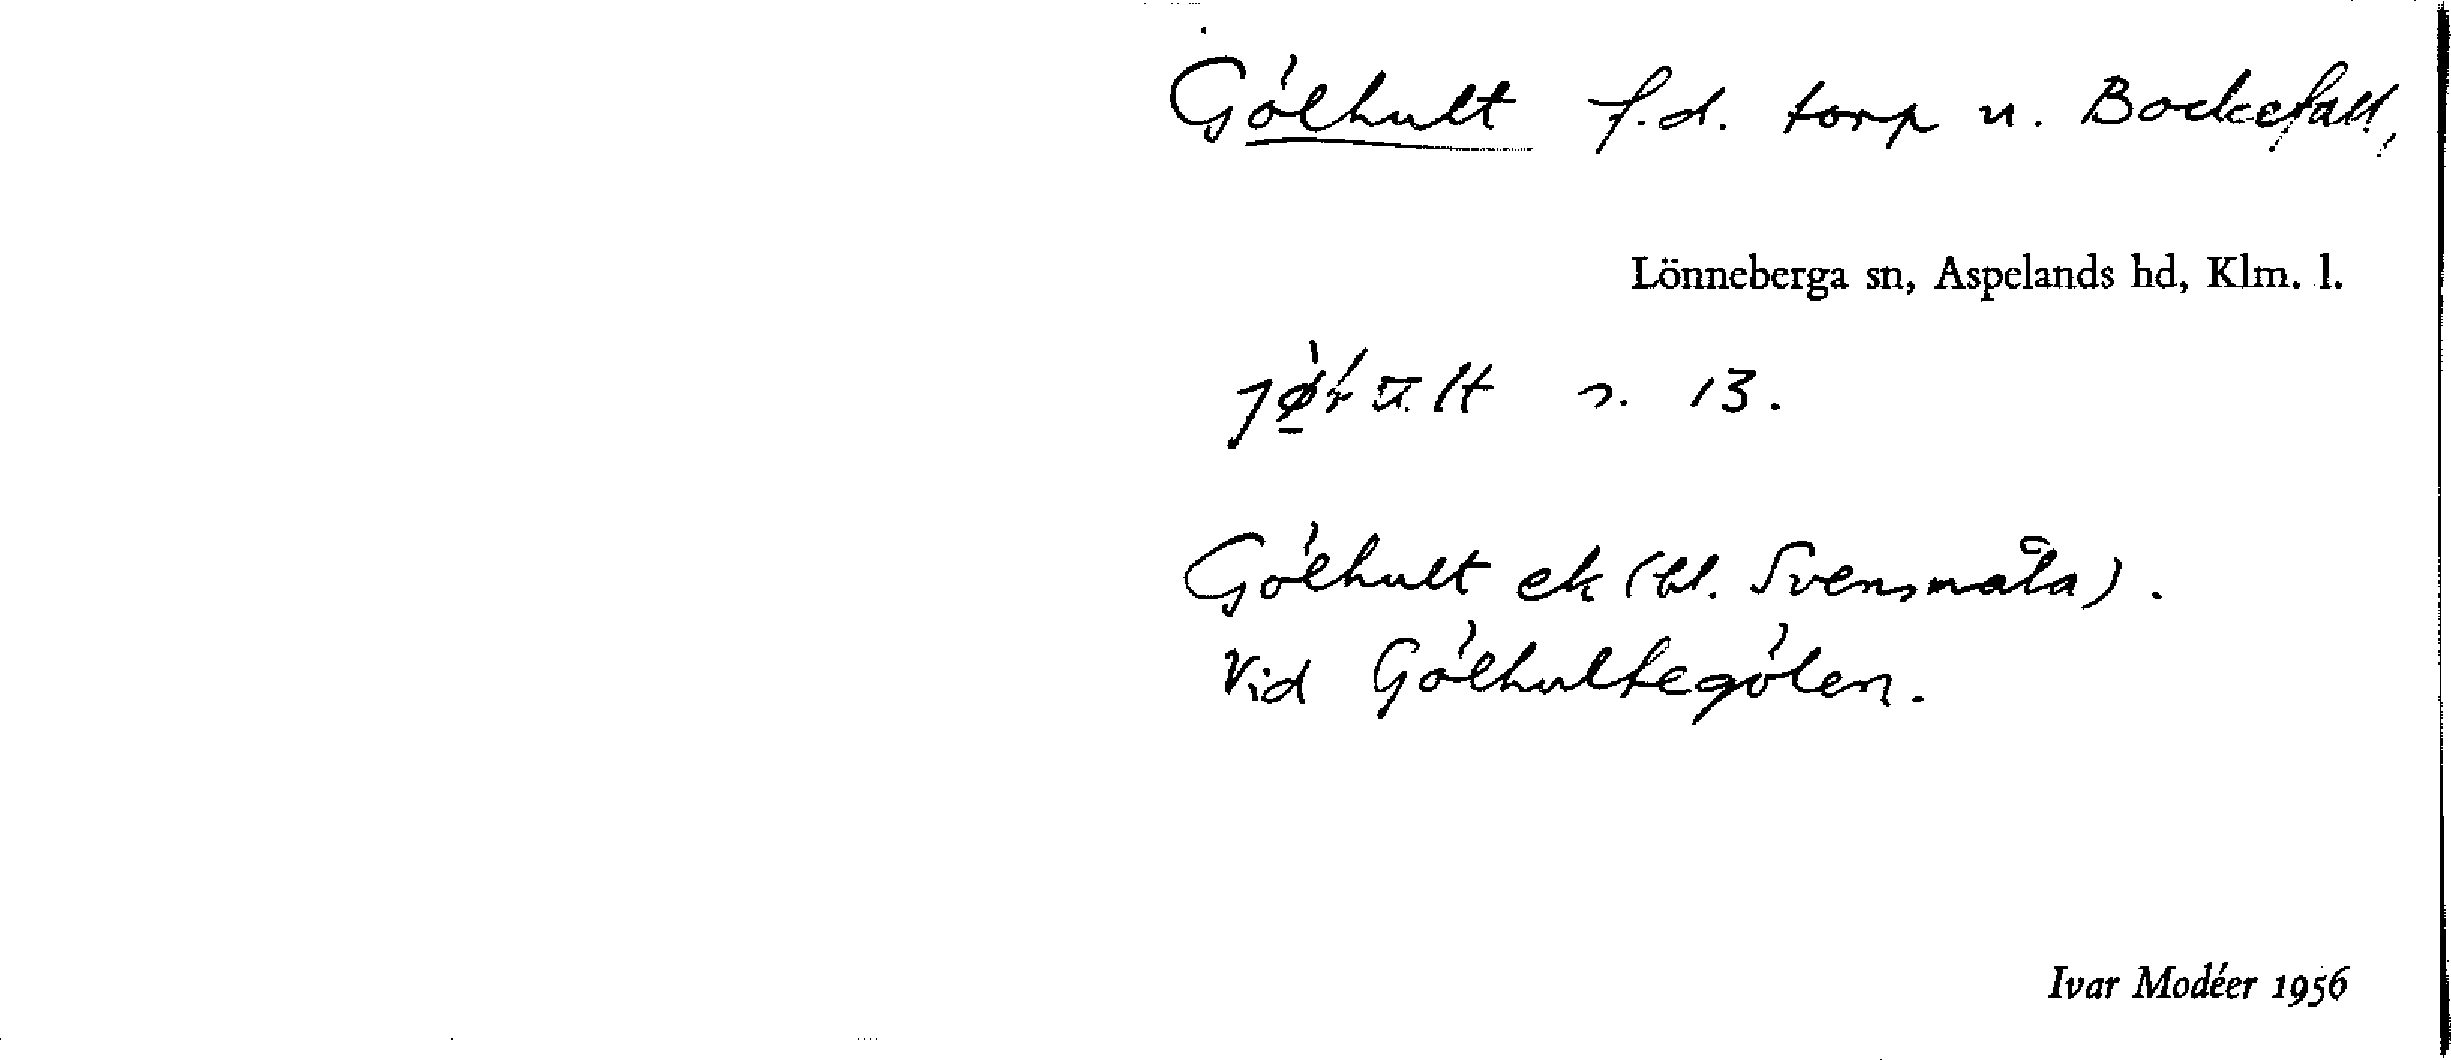 Gölhult f.d. torp u. Bockefall,
Lönneberga sn, Aspelands hd, Klm. l.
s. 13.
Gölhult ek (bl. Svensmåla).
Vid Gölhultegölen.
Ivar Modéer 1956